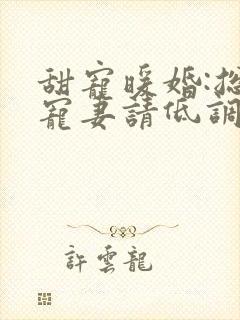 甜寵暖婚:總
寵妻請低調
許雲龍